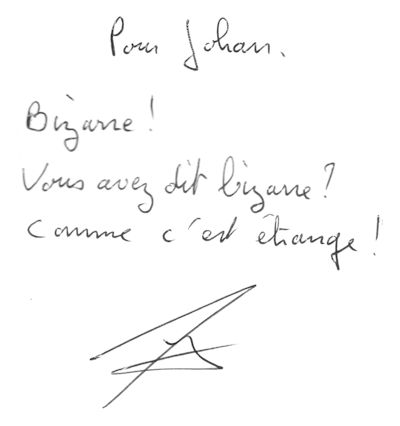 Pour Johan.
Bizarre !
Vous avez dit bizarre ?
Comme c'est étrange !